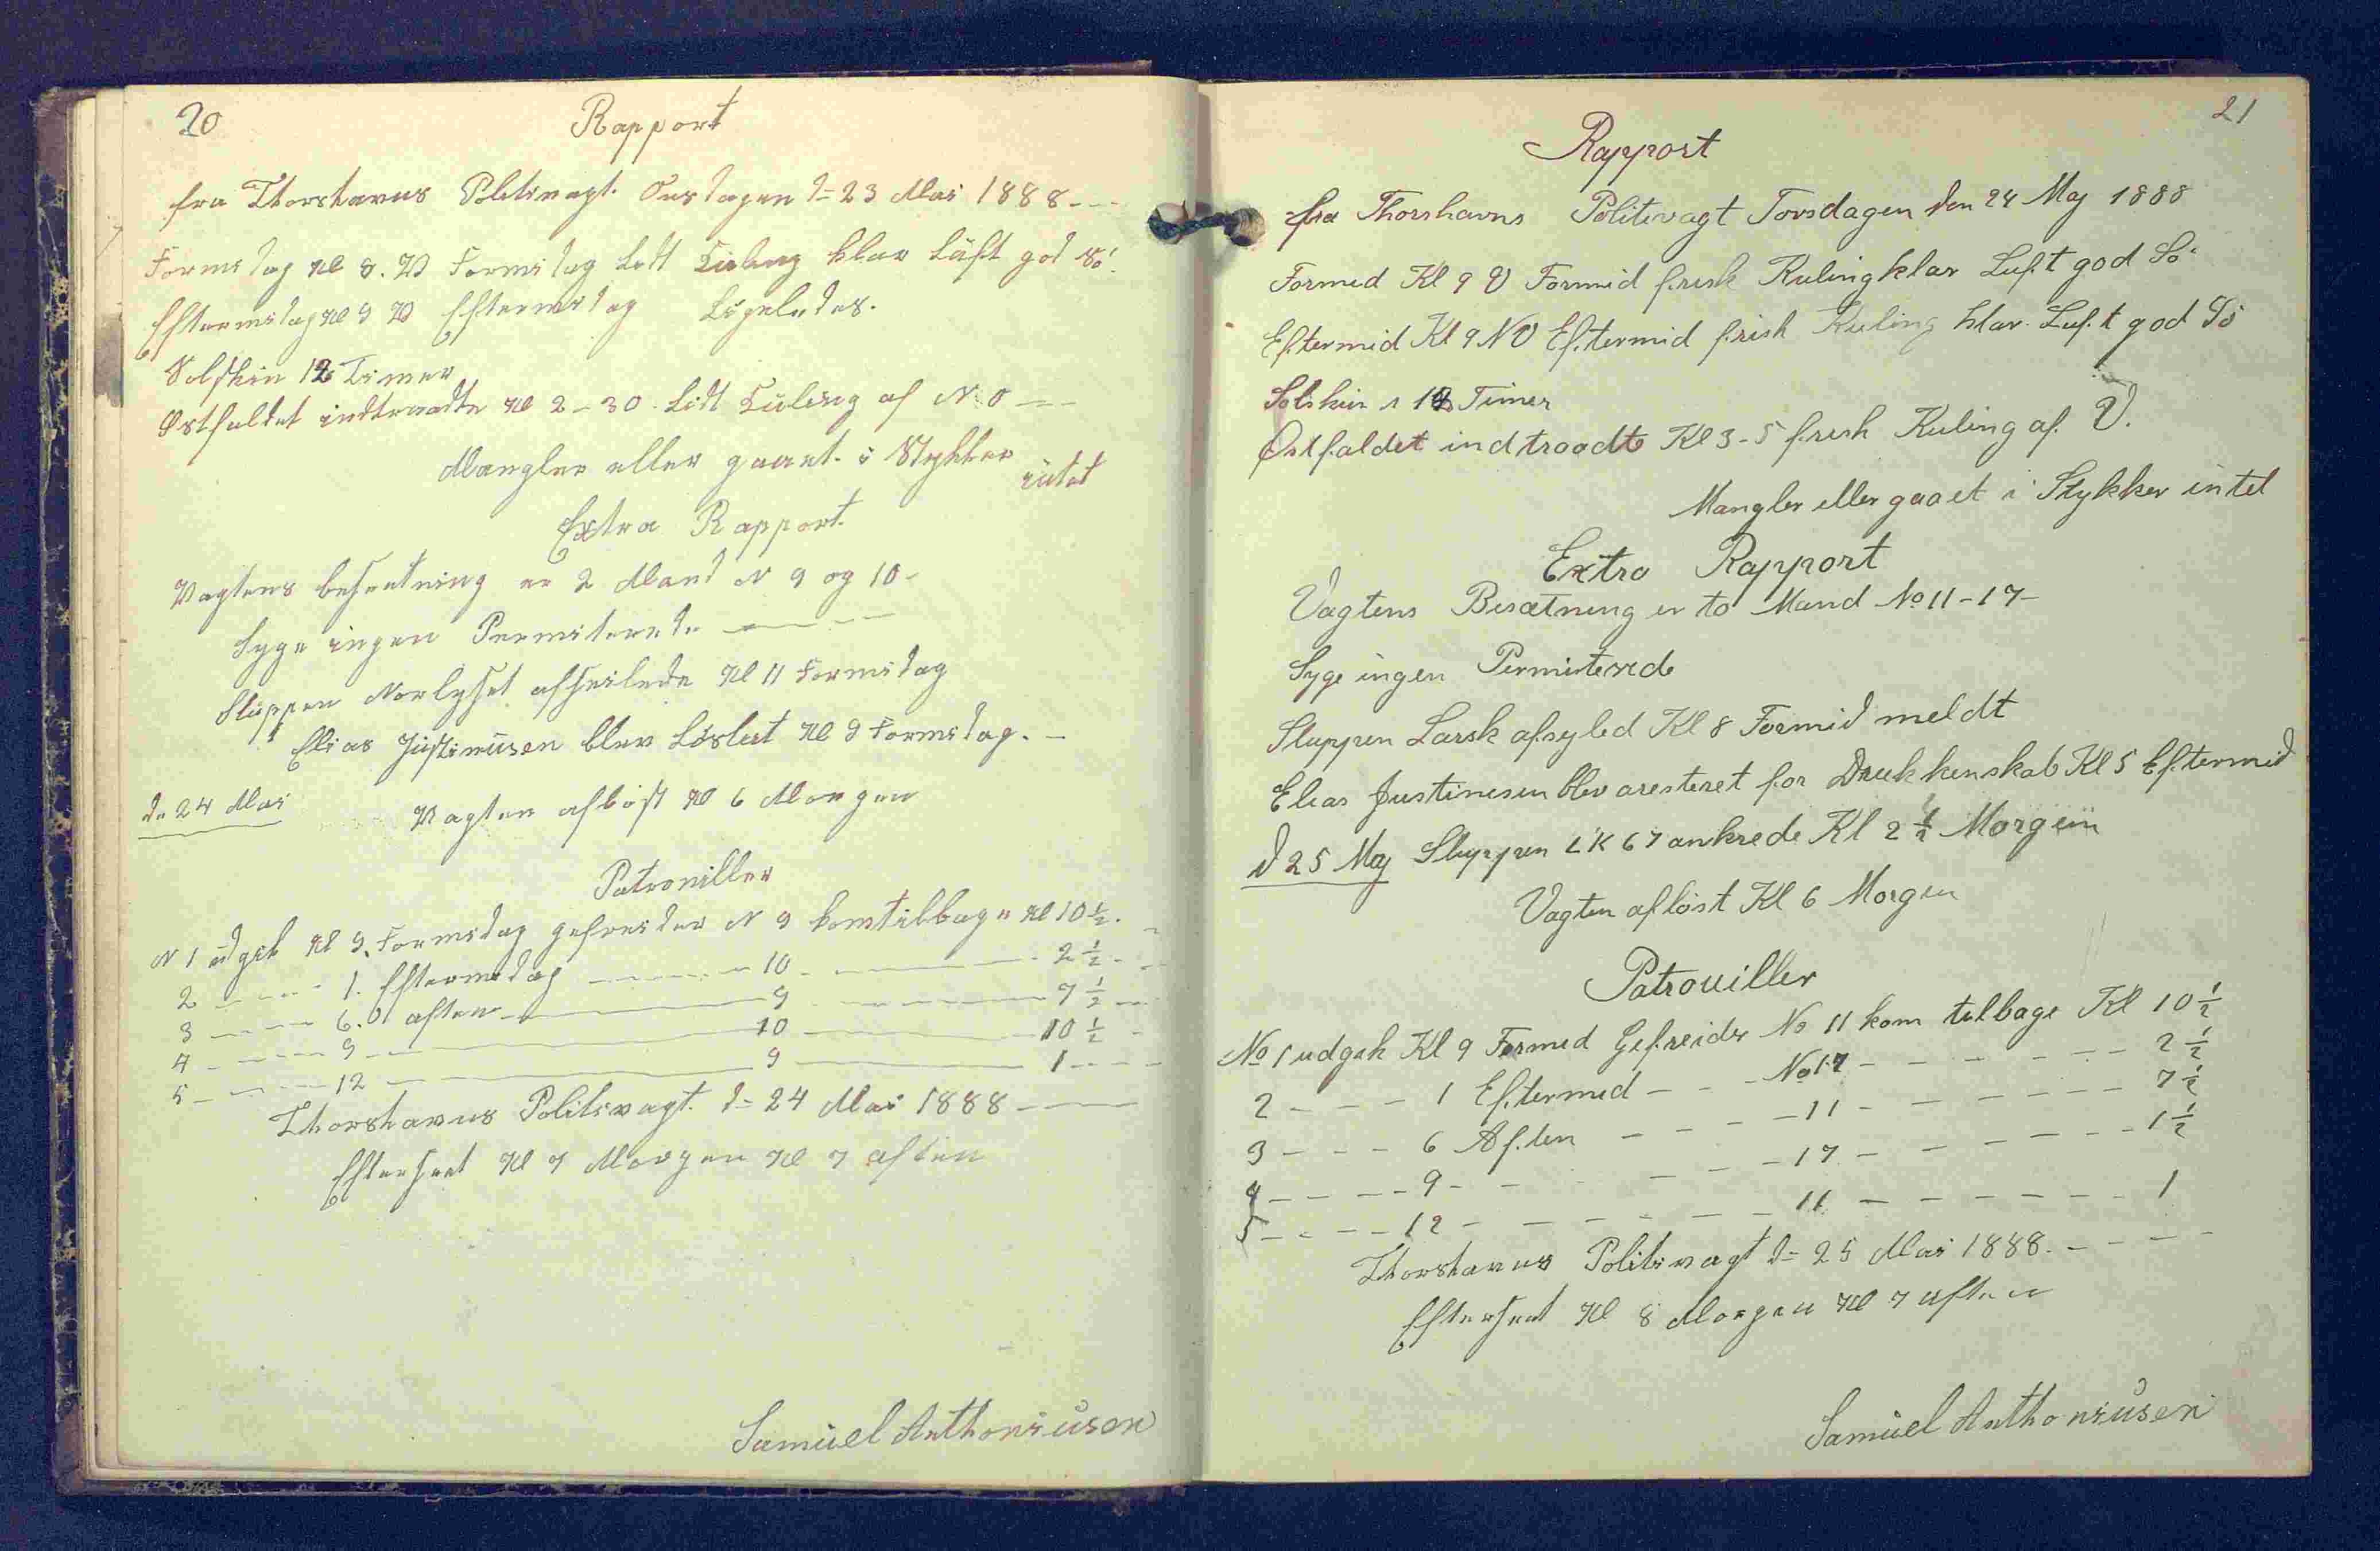 20
Rapport
fra Thorshavns Politivagt. Onsdagen d= 23 Mai 1888 - - -
Formidag Kl 8. V Formidag Lidt Kuling klar Luft god Sö.
Eftermidag Kl 9 V Eftermidag Ligeledes.
Solskin 12 Timer
Østfaldet indtraadte Kl 2 - 30. Lidt Kuling af N.O - -
Mangler eller gaaet i Stykker intet
Extra Rapport.
Vagtens besætning er 2 Mand N 9 og 10 -
Syge ingen Permiterede - - -
Sluppen Norlyset afseilede Kl 11 Formidag
Elias Justinusen blev Löslat Kl 9 Formidag. -
d. 24 Mai Vagten aflöst Kl 6 Morgen
Patrouiller
N 1 udgik Kl 9. Formidag gefreider N 9 kom tilbage Kl 10 ½. -
2 - - - 1. Eftermidag - - - 10 - - - 2 ½ - -
3 - - - 6. aften - - 9 - - - 7 ½ - -
4 - - - 9 - - - 10 - - - 10 ½ -
5 - - - 12 - - - 9 - - - 1 - - -
Thorshavns Politivagt. d= 24 Mai 1888 - - -
Efterseet Kl 7 Morgen Kl 7 aften
Samuel Anthoniusen
21
Rapport
fra Thorshavns Politivagt Torsdagen den 24 Maj 1888
Formid Kl 9 V Formid frisk Kuling klar Luft god Sö
Eftermid Kl 9 NO Eftermid frisk Kuling klar Luft god Sö
Solskin i Timer
Østfaldet indtraadte Kl 3 - 5 frisk Kuling af V.
Mangler eller gaaet i Stykker intet
Extra Rapport
Vagtens Besætning er to Mand No 11 - 17 -
Syge ingen Permiterede
Sluppen Larsk afsyled Kl 8 Formid meldt
Elias Justinesen blev aresteret for Drukkenskab Kl 5 Eftermid
d 25 Maj Sluppen LK 67 ankrede Kl 2 ½ Morgein
Vagten aflöst Kl 6 Morgen
Patrouiller
No 1 udgik Kl 9 Formid Gefreider No 11 kom tilbage Kl 10 ½
2 - - - 1 Eftermid - - - No 17 - - - 2 ½
3 - - - 6 Aften - - - 11 - - - 7 ½
4 - - - 9 - - - 17 - - - 1 ½
5 - - - 12 - - - 11 - - - 1
Thorshavns Politivagt d= 25 Mai 1888. - - - -
Efterseet Kl 8 Morgen Kl 7 aften
Samuel Anthoniusen